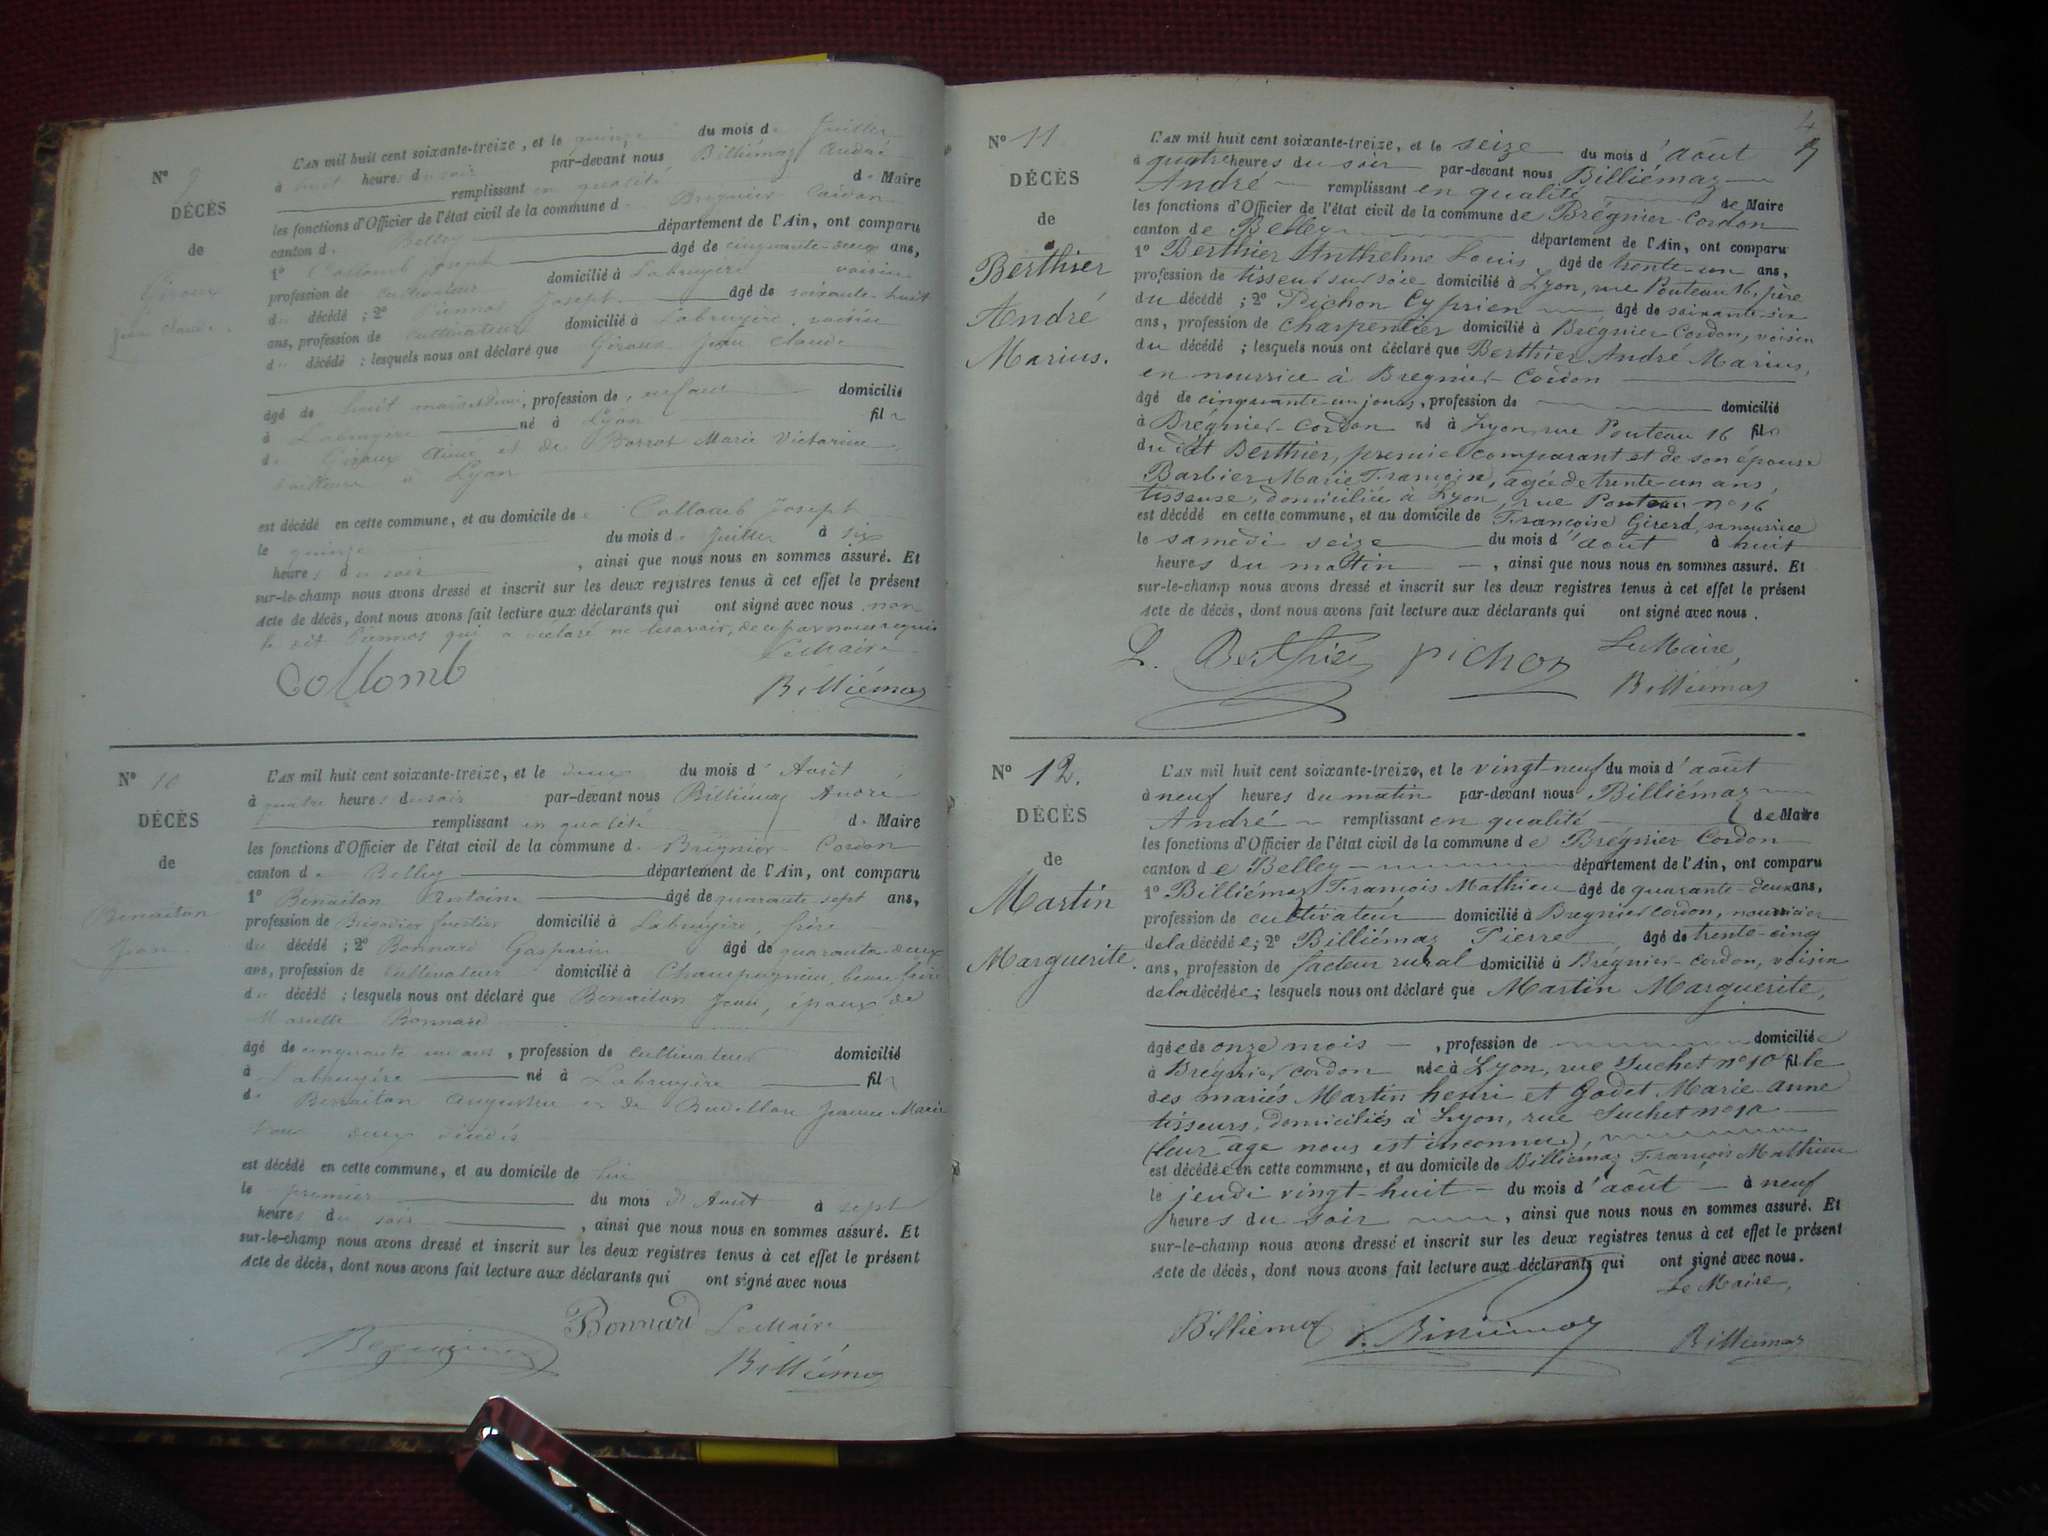 N° 9
DÉCÈS
de
Giroux
Jean Claude
L'AN mil huit cent soixante-treize, et le quinze du mois de Juillet
à huit heures du soir par-devant nous Billiémaz André
remplissant en qualité de Maire
les fonctions d'Officier de l'état civil de la commune de Brégnier-Cordon
canton de Belley département de l'Ain, ont comparu
1° Collomb Joseph âgé de cinquante-deux ans,
profession de cultivateur domicilié à Labruyère voisin
du décédé ; 2° Joseph âgé de soixante-huit
ans, profession de cultivateur domicilié à Labruyère, voisin
du décédé ; lesquels nous ont déclaré que Giroux Jean Claude
âgé de huit mois, profession de enfant domicilié
à Labruyère né à Lyon fils
de Giroux Aimé et de Marie Victorine
à Lyon
est décédé en cette commune, et au domicile de Collomb Joseph
le quinze du mois de Juillet à six
heures du soir, ainsi que nous nous en sommes assuré. Et
sur-le-champ nous avons dressé et inscrit sur les deux registres tenus à cet effet le présent
Acte de décès, dont nous avons fait lecture aux déclarants qui ont signé avec nous, non
le dit qui a déclaré ne le savoir, de ce par nous requis
Le Maire
Collomb Billiémaz
N° 10
DÉCÈS
de
Benaiton
Jean
L'AN mil huit cent soixante-treize, et le deux du mois d'Août
à quatre heures du soir par-devant nous Billiémaz André
remplissant en qualité de Maire
les fonctions d'Officier de l'état civil de la commune de Brégnier-Cordon
canton de Belley département de l'Ain, ont comparu
1° Benaiton Antoine âgé de quarante sept ans,
profession de Brigadier forestier domicilié à Labruyère, frère
du décédé ; 2° Bonnard Gasparin âgé de quarante-deux
ans, profession de cultivateur domicilié à Champagneux, beau-frère
du décédé ; lesquels nous ont déclaré que Benaiton Jean, époux de
Mariette Bonnard
âgé de cinquante un ans, profession de cultivateur domicilié
à Labruyère né à Labruyère fils
de Benaiton Augustin et de Jeanne Marie
tous deux décédés
est décédé en cette commune, et au domicile de lui
le premier du mois d'Août à sept
heures du soir, ainsi que nous nous en sommes assuré. Et
sur-le-champ nous avons dressé et inscrit sur les deux registres tenus à cet effet le présent
Acte de décès, dont nous avons fait lecture aux déclarants qui ont signé avec nous
Bonnard Le Maire
Billiémaz
4
N° 11
DÉCÈS
de
Berthier
André
Marius.
L'AN mil huit cent soixante-treize, et le seize du mois d'août
à quatre heures du soir par-devant nous Billiémaz
André remplissant en qualité de Maire
les fonctions d'Officier de l'état civil de la commune de Brégnier-Cordon
canton de Belley département de l'Ain, ont comparu
1° Berthier Anthelme Louis âgé de trente-un ans,
profession de tisseur sur soie domicilié à Lyon, rue Pouteau 16, père
du décédé ; 2° Pichon Cyprien âgé de soixante-six
ans, profession de charpentier domicilié à Brégnier-Cordon, voisin
du décédé ; lesquels nous ont déclaré que Berthier André Marius,
en nourrice à Brégnier-Cordon
âgé de cinquante-un jours, profession de domicilié
à Brégnier-Cordon né à Lyon rue Pouteau 16 fils
du dit Berthier, premier comparant et de son épouse
Barbier Marie Françoise, âgée de trente-un ans,
tisseuse, domiciliée à Lyon, rue Pouteau n° 16
est décédé en cette commune, et au domicile de Françoise Girerd, sa nourrice
le samedi seize du mois d'août à huit
heures du matin, ainsi que nous nous en sommes assuré. Et
sur-le-champ nous avons dressé et inscrit sur les deux registres tenus à cet effet le présent
Acte de décès, dont nous avons fait lecture aux déclarants qui ont signé avec nous.
L. Berthier Pichon Le Maire,
Billiémaz
N° 12.
DÉCÈS
de
Martin
Marguerite.
L'AN mil huit cent soixante-treize, et le vingt-neuf du mois d'août
à neuf heures du matin par-devant nous Billiémaz
André remplissant en qualité de Maire
les fonctions d'Officier de l'état civil de la commune de Brégnier Cordon
canton de Belley département de l'Ain, ont comparu
1° Billiémaz François Mathieu âgé de quarante-deux ans,
profession de cultivateur domicilié à Brégnier Cordon, nourricier
de la décédée ; 2° Billiémaz Pierre âgé de trente-cinq
ans, profession de facteur rural domicilié à Brégnier-Cordon, voisin
de la décédée ; lesquels nous ont déclaré que Martin Marguerite,
âgée de onze mois, profession de domiciliée
à Brégnier Cordon née à Lyon, rue Suchet n° 10 fille
des mariés Martin henri et Godet Marie-anne
tisseurs, domiciliés à Lyon, rue Suchet n° 10
(leur âge nous est inconnu),
est décédée en cette commune, et au domicile de Billiémaz François Mathieu
le jeudi vingt-huit du mois d'août à neuf
heures du soir, ainsi que nous nous en sommes assuré. Et
sur-le-champ nous avons dressé et inscrit sur les deux registres tenus à cet effet le présent
Acte de décès, dont nous avons fait lecture aux déclarants qui ont signé avec nous.
Le Maire,
Billiemaz P. Billiemaz Billiémaz